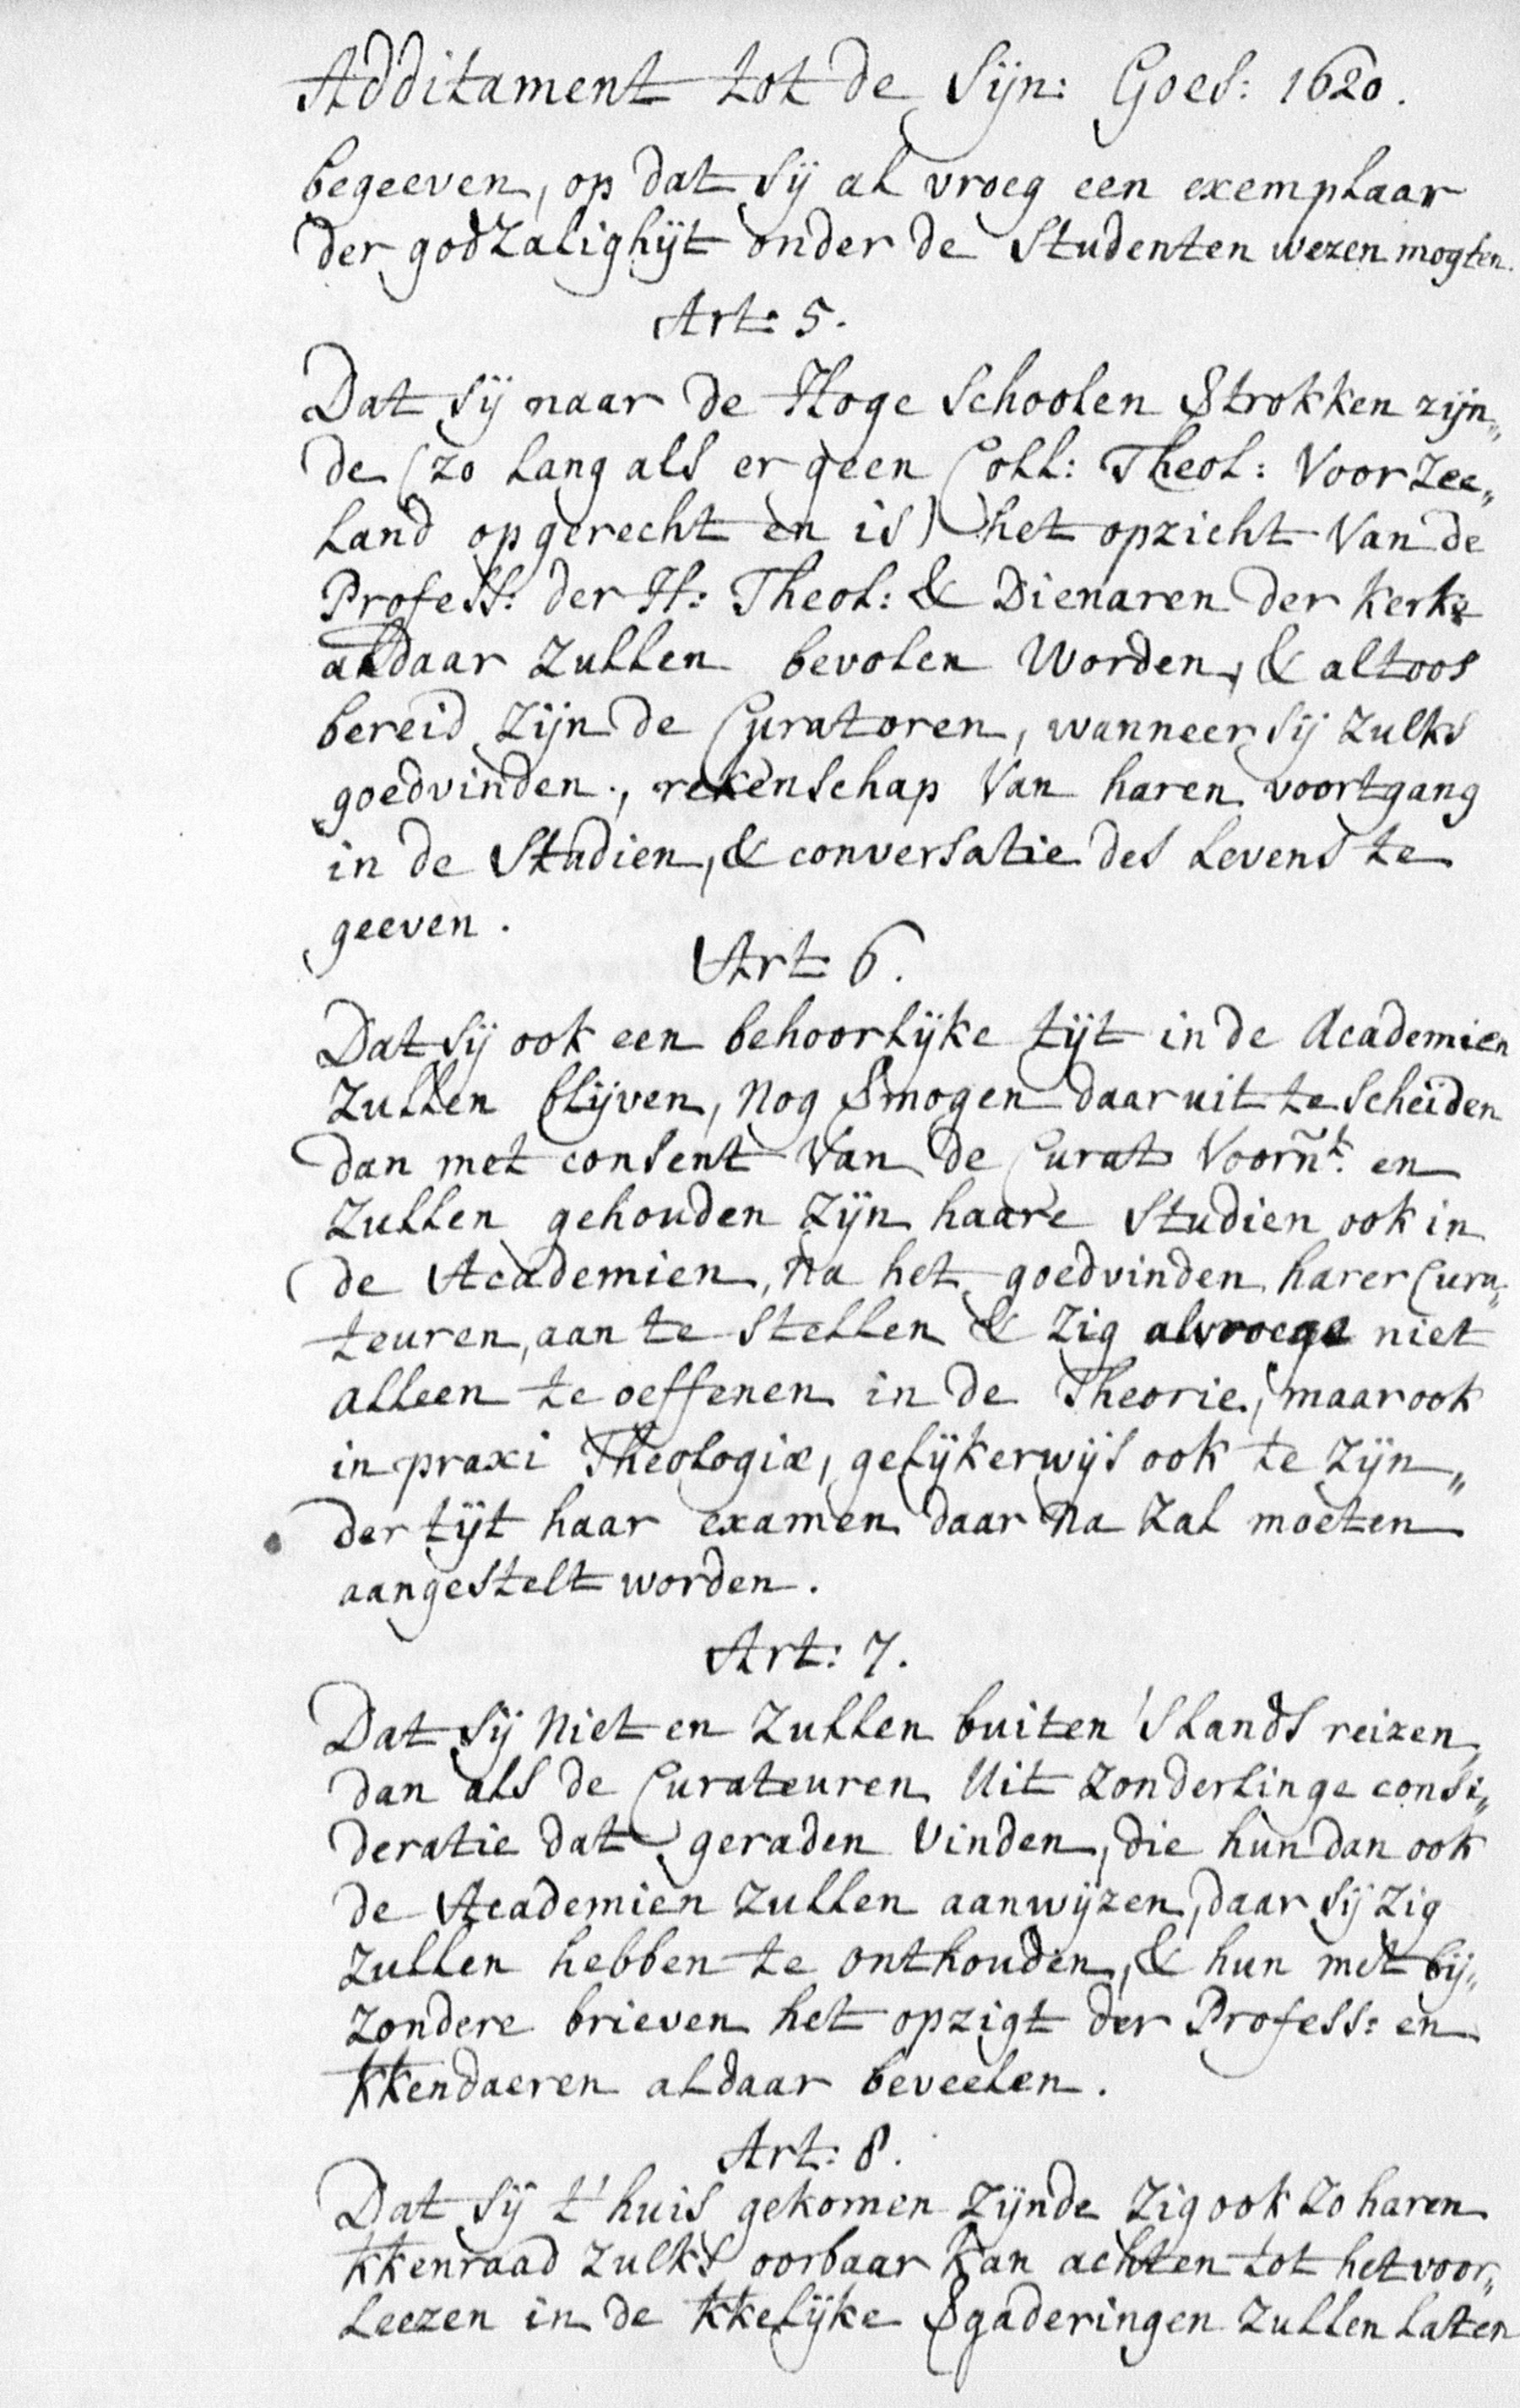 Additament tot de Sijn: Goes: 1620.
begeeven, op dat sij al vroeg een exemplaar
der godzalighijt onder de Studenten wezen mogten.
Art: 5.
Dat sij naar de Hoge Schoolen vtrokken zijn„
de (zo lang als er geen Coll: Theol: Voor Zee„
land opgerecht en is) het opzicht Van de
Profess: der H: Theol: & Dienaren der kerke
aldaar zullen bevolen Worden, & altoos
bereid zijn de Curatoren, wanneer sij zulks
goedvinden, rekenschap Van haren voortgang
in de Studien, & conversatie des levens te
geeven.
Art: 6.
Dat sij ook een behoorlijke tijt in de Academien
zullen blijven, nog vmogen daar uit te scheiden
dan met consent Van de Curat Voorñt. en
zullen gehouden zijn haare Studien ook in
de Academien, na het goedvinden harer Cura„
teuren, aan te stellen & zig alvroege niet
alleen te oeffenen in de Theorie, maar ook
in praxi Theologiæ, gelijkerwijs ook te zijn„
der tijt haar examen daar na zal moeten
aangestelt worden.
Art: 7.
Dat sij niet en zullen buiten 's Lands reizen,
dan als de Curateuren Uit zonderlinge consi„
deratie dat geraden vinden, die hun dan ook
de Academien zullen aanwijzen, daar sij zig
zullen hebben te onthouden, & hun met bij„
zondere brieven het opzigt der Profess: en
kkendaeren aldaar beveelen.
Art: 8.
Dat sij t'huis gekomen zijnde zig ook zo haren
kkenraad zulks oorbaar kan achten tot het voor„
leezen in de kkelijke vgaderingen zullen laten